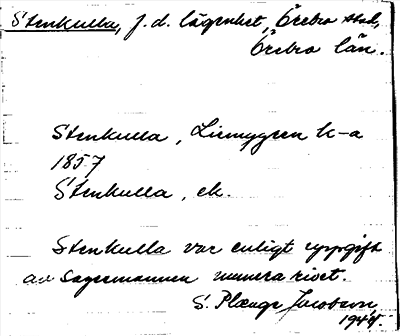 Stenkulla, f.d. lägenhet, Örebro stad,
Örebro län.
Stenkulla, k-a
1857
Stenkulla, ek.
Stenkulla var enligt uppgift
av sagesmannen numera rivet.
S. Plænge Jacobson